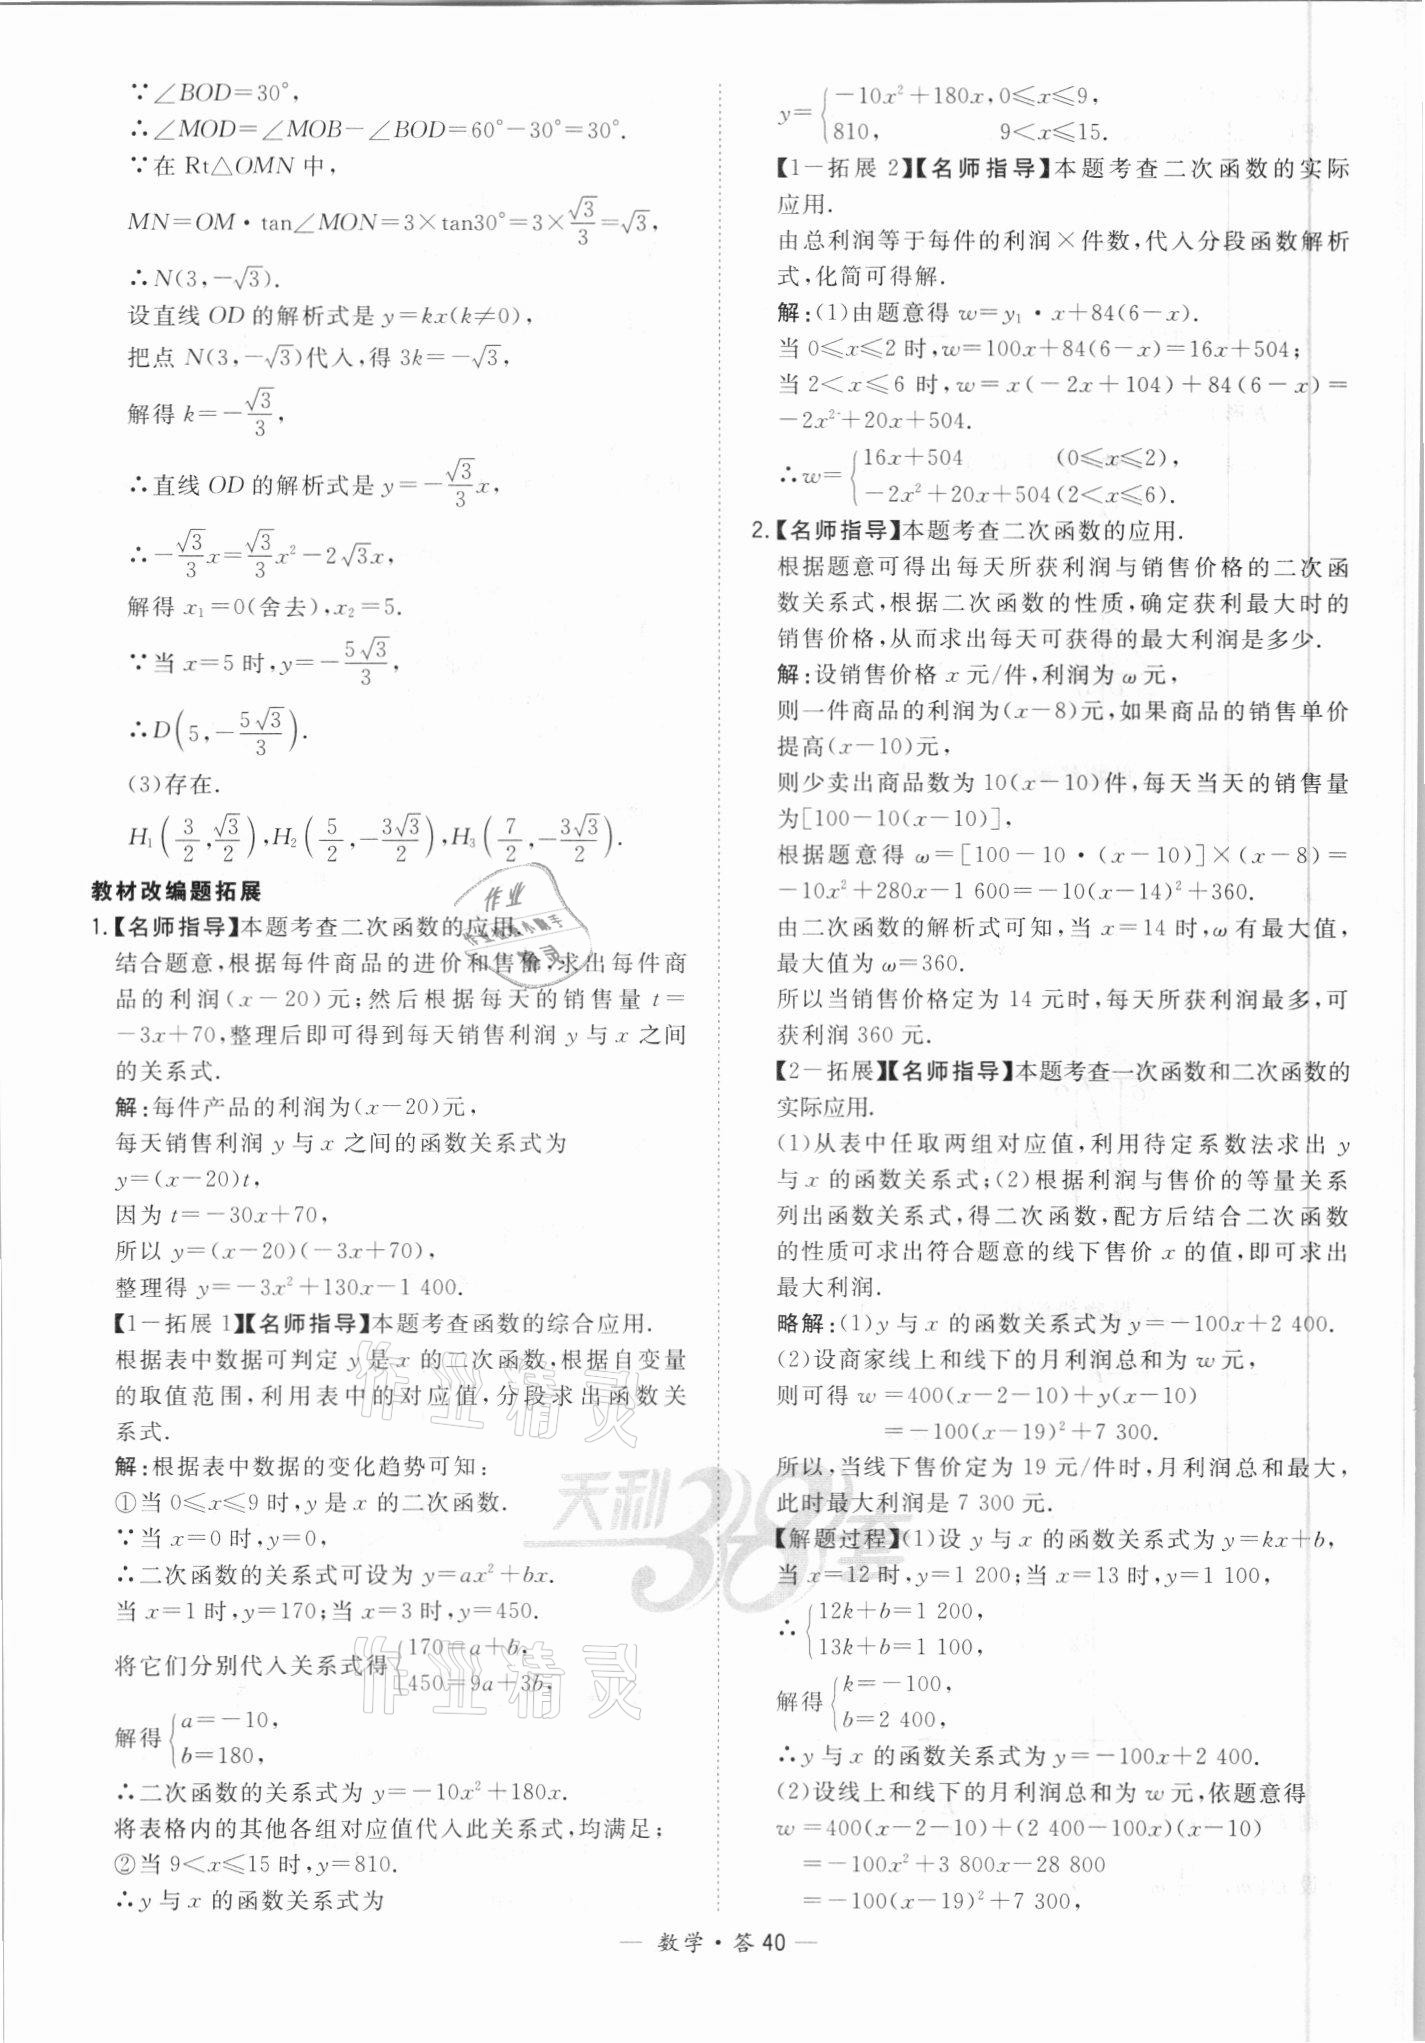 ∵∠BOD=30°,
∴∠MOD=∠MOB-∠BOD=60°-30°=30°.
∵在 Rt△OMN 中,
MN=OM·tan∠MON=3×tan30°=3×√3/3=√3,
∴N(3,-√3).
设直线 OD 的解析式是 y=kx(k≠0),
把点 N(3,-√3)代入,得 3k=-√3,
解得 k=-√3/3,
∴直线 OD 的解析式是 y=-√3/3 x,
∴-√3/3 x=√3/3 x²-2√3x,
解得 x₁=0(舍去),x₂=5.
∵当 x=5 时,y=-5√3/3,
∴D(5,-5√3/3).
(3)存在.
H₁(3/2,√3/2),H₂(5/2,-3√3/2),H₃(7/2,-3√3/2).
教材改编题拓展
1.【名师指导】本题考查二次函数的应用.
结合题意,根据每件商品的进价和售价,求出每件商
品的利润(x-20)元;然后根据每天的销售量 t=
-3x+70,整理后即可得到每天销售利润 y 与 x 之间
的关系式.
解:每件产品的利润为(x-20)元,
每天销售利润 y 与 x 之间的函数关系式为
y=(x-20)t,
因为 t=-30x+70,
所以 y=(x-20)(-3x+70),
整理得 y=-3x²+130x-1 400.
【1-拓展 1】【名师指导】本题考查函数的综合应用.
根据表中数据可判定 y 是 x 的二次函数,根据自变量
的取值范围,利用表中的对应值,分段求出函数关
系式.
解:根据表中数据的变化趋势可知:
①当 0≤x≤9 时,y 是 x 的二次函数.
∵当 x=0 时,y=0,
∴二次函数的关系式可设为 y=ax²+bx.
当 x=1 时,y=170;当 x=3 时,y=450.
将它们分别代入关系式得{170=a+b,
450=9a+3b,
解得{a=-10,
b=180,
∴二次函数的关系式为 y=-10x²+180x.
将表格内的其他各组对应值代入此关系式,均满足;
②当 9<x≤15 时,y=810.
∴y 与 x 的函数关系式为
y={-10x²+180x,0≤x≤9,
810, 9<x≤15.
【1-拓展 2】【名师指导】本题考查二次函数的实际
应用.
由总利润等于每件的利润×件数,代入分段函数解析
式,化简可得解.
解:(1)由题意得 w=y₁·x+84(6-x).
当 0≤x≤2 时,w=100x+84(6-x)=16x+504;
当 2<x≤6 时,w=x(-2x+104)+84(6-x)=
-2x²+20x+504.
∴w={16x+504 (0≤x≤2),
-2x²+20x+504(2<x≤6).
2.【名师指导】本题考查二次函数的应用.
根据题意可得出每天所获利润与销售价格的二次函
数关系式,根据二次函数的性质,确定获利最大时的
销售价格,从而求出每天可获得的最大利润是多少.
解:设销售价格 x 元/件,利润为 ω 元,
则一件商品的利润为(x-8)元,如果商品的销售单价
提高(x-10)元,
则少卖出商品数为 10(x-10)件,每天当天的销售量
为[100-10(x-10)],
根据题意得 ω=[100-10·(x-10)]×(x-8)=
-10x²+280x-1 600=-10(x-14)²+360.
由二次函数的解析式可知,当 x=14 时,ω 有最大值,
最大值为 ω=360.
所以当销售价格定为 14 元时,每天所获利润最多,可
获利润 360 元.
【2-拓展】【名师指导】本题考查一次函数和二次函数的
实际应用.
(1)从表中任取两组对应值,利用待定系数法求出 y
与 x 的函数关系式;(2)根据利润与售价的等量关系
列出函数关系式,得二次函数,配方后结合二次函数
的性质可求出符合题意的线下售价 x 的值,即可求出
最大利润.
略解:(1)y 与 x 的函数关系式为 y=-100x+2 400.
(2)设商家线上和线下的月利润总和为 w 元,
则可得 w=400(x-2-10)+y(x-10)
=-100(x-19)²+7 300.
所以,当线下售价定为 19 元/件时,月利润总和最大,
此时最大利润是 7 300 元.
【解题过程】(1)设 y 与 x 的函数关系式为 y=kx+b,
当 x=12 时,y=1 200;当 x=13 时,y=1 100,
∴{12k+b=1 200,
13k+b=1 100,
解得{k=-100,
b=2 400,
∴y 与 x 的函数关系式为 y=-100x+2 400.
(2)设线上和线下的月利润总和为 w 元,依题意得
w=400(x-2-10)+(2 400-100x)(x-10)
=-100x²+3 800x-28 800
=-100(x-19)²+7 300,
— 数学·答 40 —
作业
作业检查小助手
精灵
作业精灵
天利38套
作业精灵